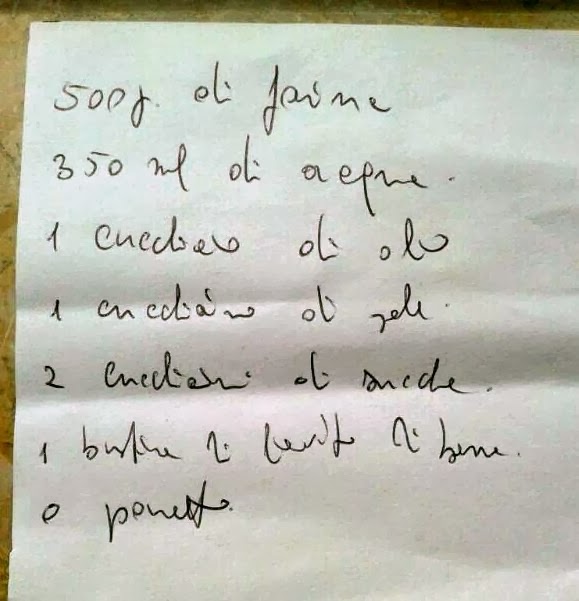 500g. di farina
350 ml di acqua.
1 cucchiaio di olio
1 cucchiaino di sale.
2 cucchiaini di zucche.
1 bustina di lievito di birra.
o panetto.